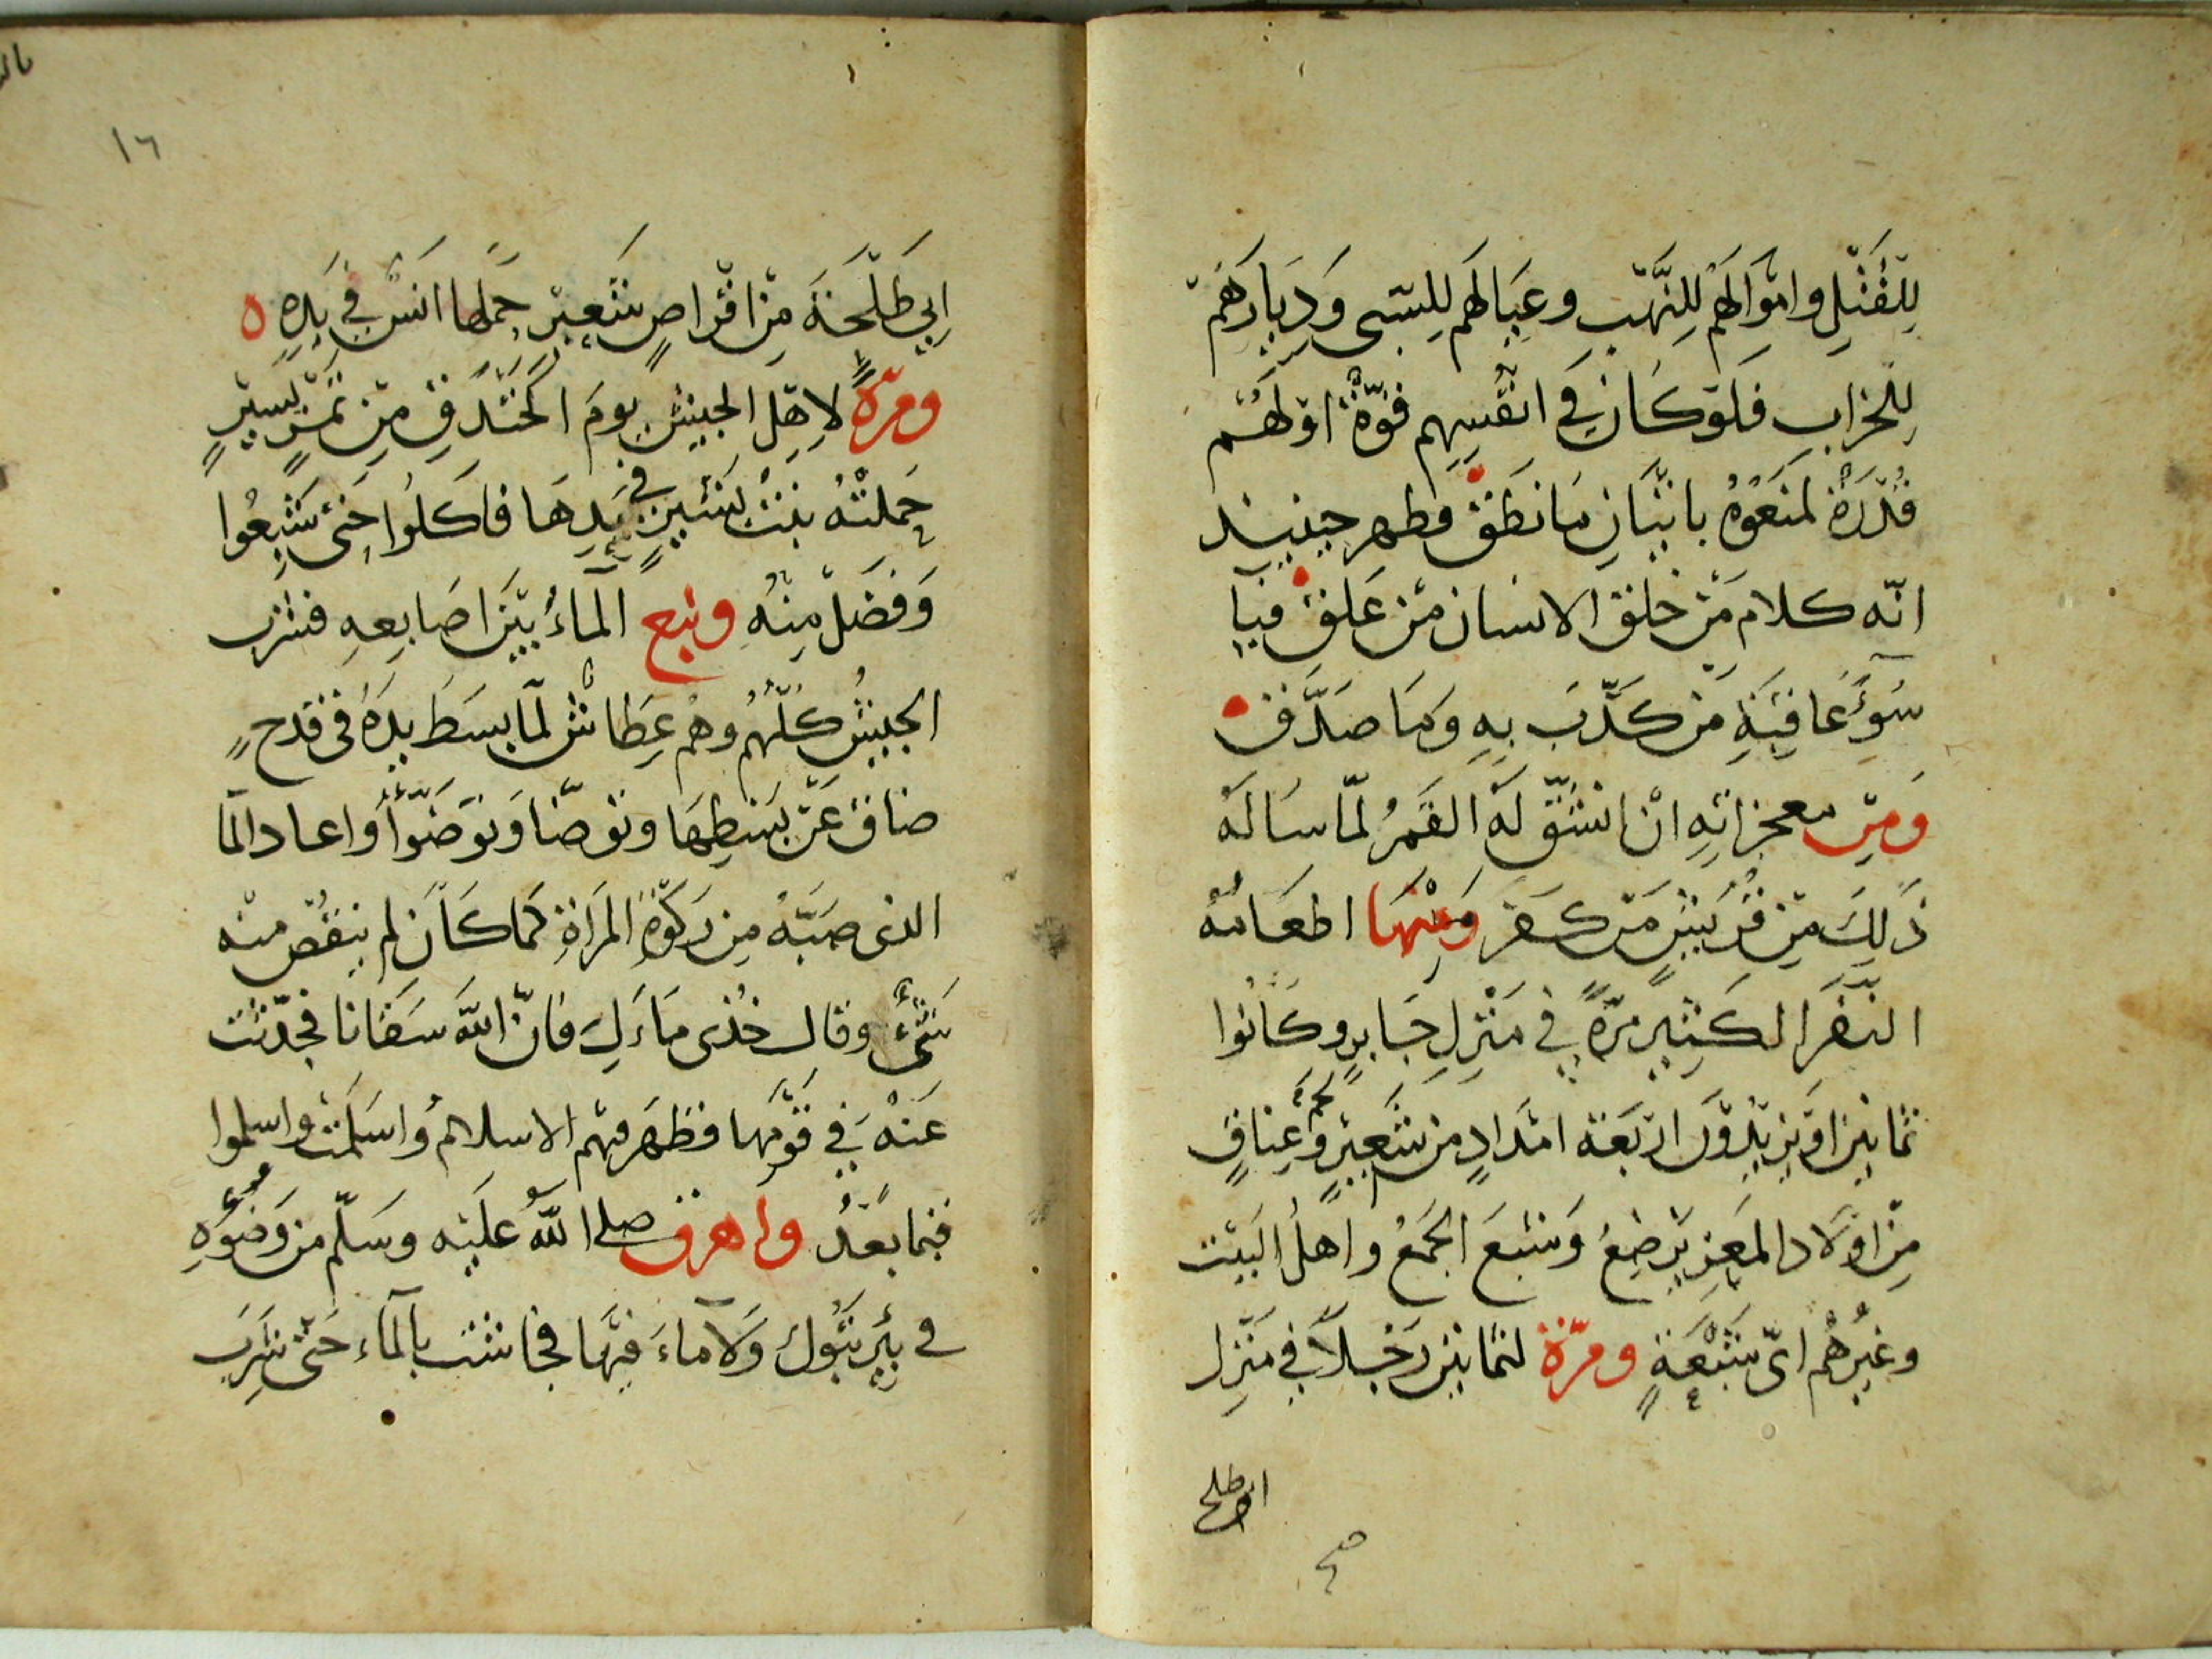 لِلْقَتْلِ وامْوَالَهُم لِلنَّهْبِ وعِيَالَهُم لِلسَبى وَدِيَارَهُمْ
لِلخرابِ فَلَوْ كَانَ فِي انْفُسِهِم قُوَّةٌ اوْ لَهُمْ
قُدْرَةٌ لَمنَعَوْهُ باتيَانِ مَا نَطَقَ وظهر حينيذ
انّه كلام مَنْ خلق الانسان مْن عَلَق فيا
سُوَٓءَ عَاقِبَةِ مَن كَذَّبَ بِهِ وَمَا صَدَّق
وَمِنْ معجزاتِهِ انْ انشَقّ لَهُ القَمرُ لمّا سَالَهُ
ذَلِكَ مِنْ قُرَيشٍ مَنْ كَفر وَمِنْهَا اطعَامهُ
النَّفَر الكَثِير مرّةً فِي مَنْزِلِ جَابرٍ وكَانُوا
ثمانين اوْ يزيْدُوْنَ ارْبَعَة امْدَادٍ من شَعِيْرٍ ولحم عِناقٍ
مِنْ اوْلَاد المَعِزِ يَرْضِعُ وَشبعَ الجَمعُ واهلُ البَيْت
وغيْرُهُمْ ايّ شَبْعَةٍ ومرّةً لثمانين رَجُلاً في مَنْزِل
ابى طلحة
صح
١٦
ابِي طَلْحَةَ مِنْ اقْراصٍ شَعِيْرٍ حَملها انَسٌ فِي يَدِهِ ه
ومرّةً لاِهْلِ الجيش يومَ الخَنْدَقِ مِنْ تَمْرٍ يَسيْرٍ
حَملتْهُ بنتُ بَشِيْرٍ فى يَدِهَا فاكَلُوا حَتى شَبِعُوا
وَفَضَلَ مِنْهُ ونبع الْمآءُ بيْنَ اصَابِعِهِ فشرب
الجيشُ كُلُّهُم وهُم عِطاشٌ لمّا بسَطَ يدَهُ فى قدحٍ
ضاقَ عَنْ بَسْطِهَا وتوضّا وَتوَضَّؤُا وَاعاد المآ
الذى صَبَّهُ مِن رَكوَةِ المَرَاةِ كما كَانَ لم ينقُص منْه
شَىْءٌ وقال خُذى مَاءَكِ فانّ اللهَ سَقَانا فحدّثت
عَنْهُ فِي قَوْمِها فظهَر فيْهم الاسلامُ وَاسْلَمَتْ واسلموا
فيما بَعْدُ واهرق صلى اللهُ عَلَيْه وسَلّم من وَضُوءِهِ
في بِئرِ تبُوكَ وَلَا ماءَ فيْهَا فجاشَت بالمآء حَتى شَرِبَ